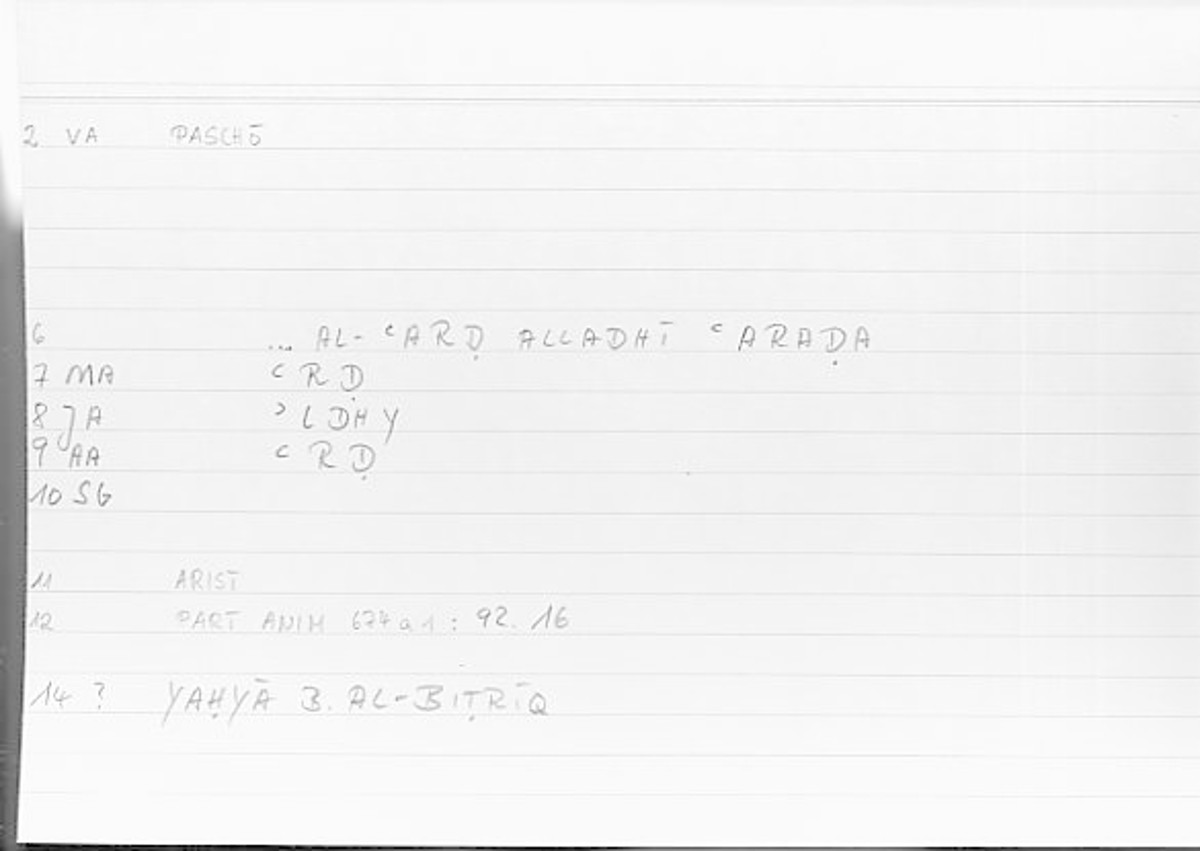 2 VA PASCHŌ
6 ... AL-ʿARḌ ALLADHĪ ʿARAḌA
7 MA ʿRḌ
8 JA ʾLDHY
9 AA ʿRḌ
10 SG
11 ARIST
12 PART ANIM 674a1: 92.16
14 ? YAḤYĀ B. AL-BIṬRĪQ